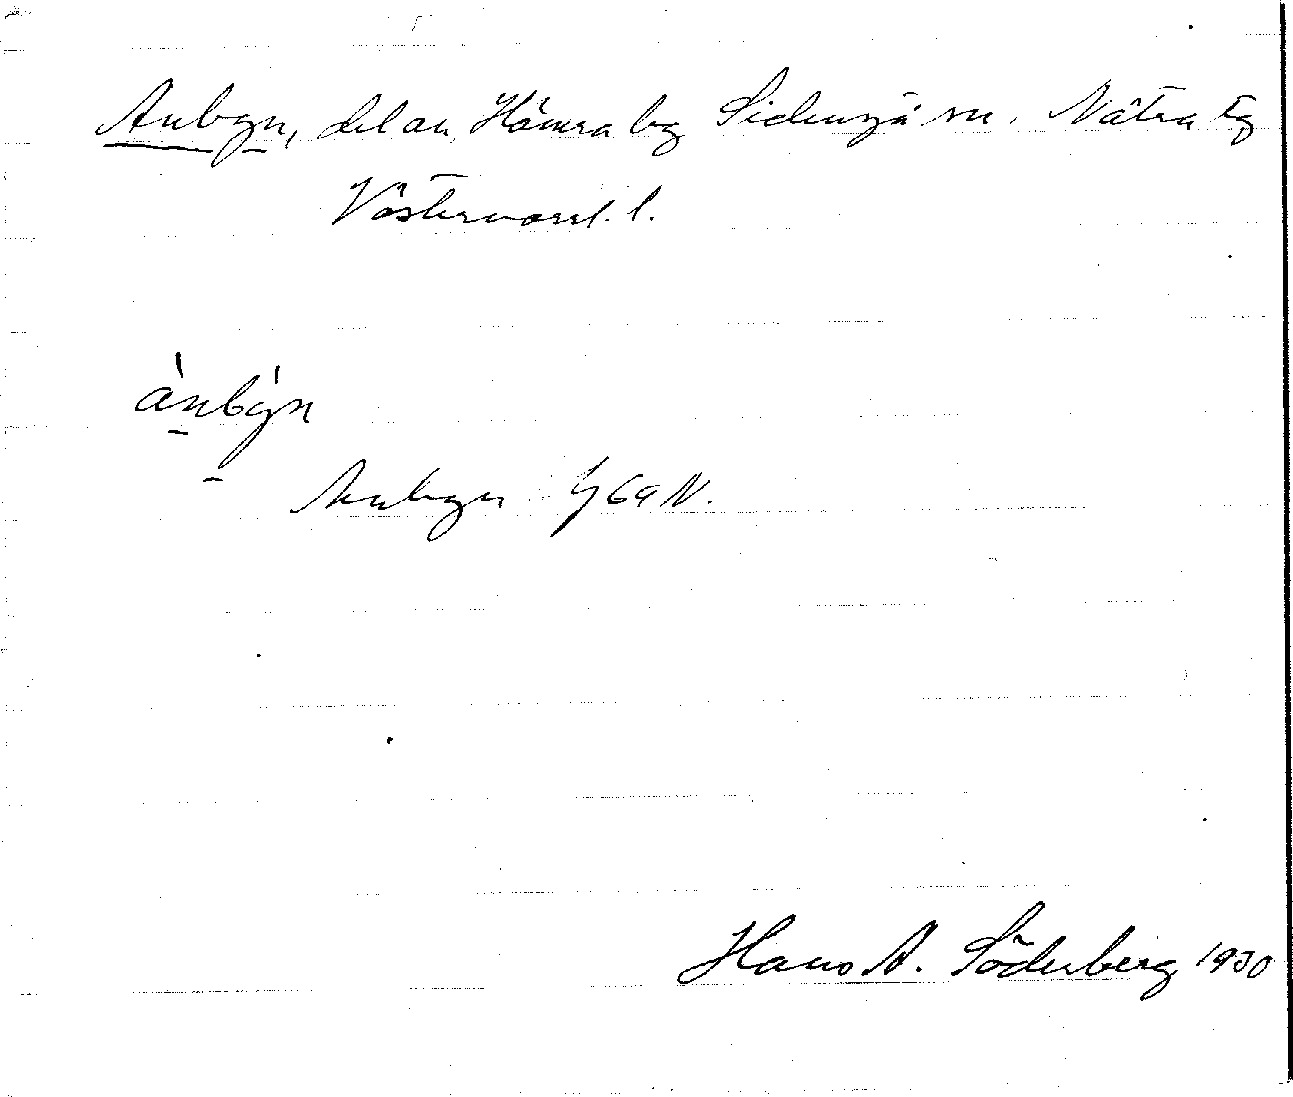 Anbyn, del av Hämra by Sidensjö sn. Nätra tg
Västernorrl. l.
ánbýn
Anbyn G69N.
Hans A. Söderberg 1930